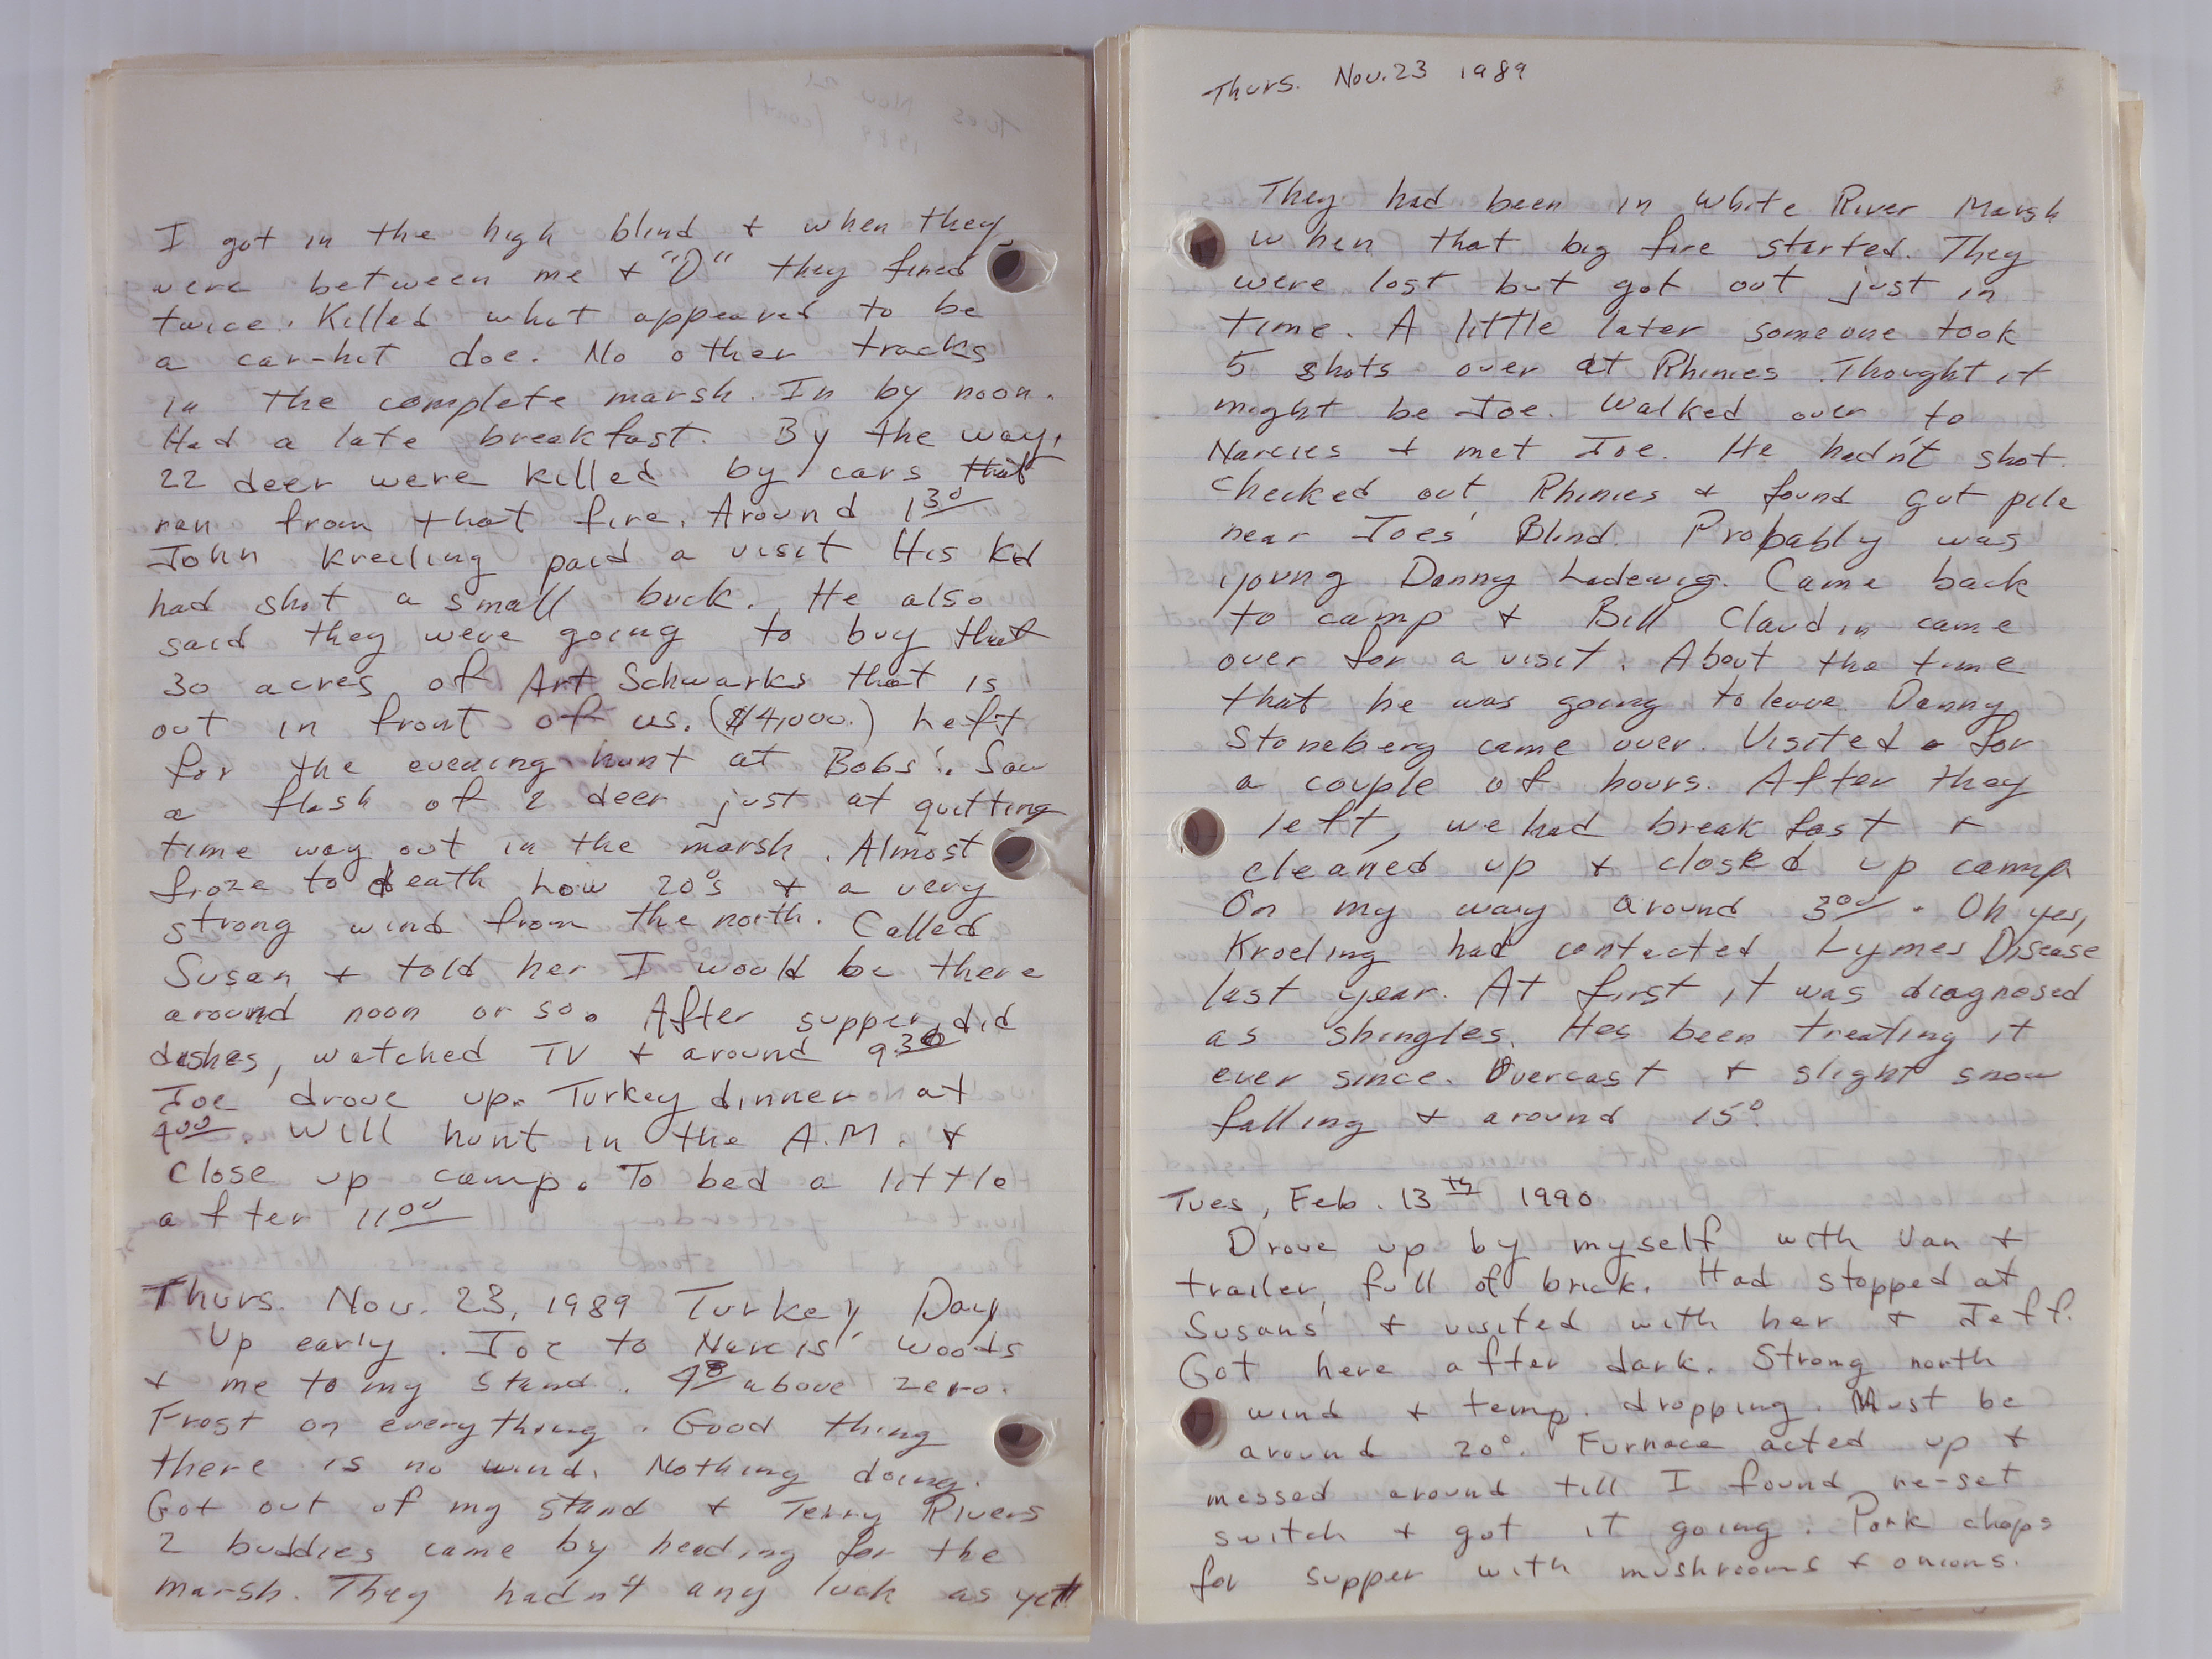 I got in the high blind + when they
were between me + "D" they fired
twice. Killed what appeared to be
a car-hit doe. No other tracks
in the complete marsh. In by noon.
Had a late breakfast. By the way,
22 deer were killed by cars that
ran from that fire. Around 1 30
John Kreiling paid a visit His kid
had shot a small buck. He also
said they were going to buy that
30 acres of Art Schwarks that is
out in front of us. ($4,000.) Left
for the evening hunt at Bobs'. Saw
a flash of 2 deer just at quitting
time way out in the marsh. Almost
froze to death low 20°s & a very
strong wind from the north. Called
Susan + told her I would be there
around noon or so. After supper, did
dishes, watched TV + around 9 30
Joe drove up. Turkey dinner at
4 00. Will hunt in the A.M. +
close up camp. To bed a little
after 11 00
Thurs. Nov. 23, 1989 Turkey Day
Up early. Joe to Narcis' woods
+ me to my stand. above zero.
Frost on everything. Good thing
there is no wind. Nothing doing.
Got out of my stand + Terry Rivers
2 buddies came by heading for the
marsh. They hadn't any luck as yet
Thurs. Nov. 23 1989
They had been in White River Marsh
when that big fire started. They
were lost but got out just in
time. A little later someone took
5 shots over at Rhinies. Thought it
might be Joe. Walked over to
Narcies + met Joe. He hadn't shot.
Checked out Rhinies + found gut pile
near Joes' Blind. Probably was
young Danny Ladewig. Came back
to camp & Bill Claudin came
over for a visit. About the time
that he was going to leave Danny
Stoneberg came over. Visited for
a couple of hours. After they
left, we had breakfast +
cleaned up + closed up camp
On my way around 3 00. Oh yes,
Kroeling had contacted Lymes Disease
last year. At first it was diagnosed
as shingles. Hes been treating it
ever since. Overcast + slight snow
falling & around 15°.
Tues, Feb. 13th 1990
Drove up by myself with Van +
trailer, full of brick. Had stopped at
Susans' + visited with her + Jeff.
Got here after dark. Strong north
wind + temp. dropping. Must be
around 20°. Furnace acted up +
messed around till I found re-set
switch + got it going. Pork chops
for supper with mushrooms & onions.